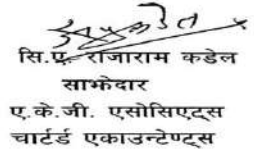 सि.ए. राजाराम कडेल
साझेदार
ए.के.जी. एसोसिएट्स
चार्टर्ड एकाउन्टेण्ट्स